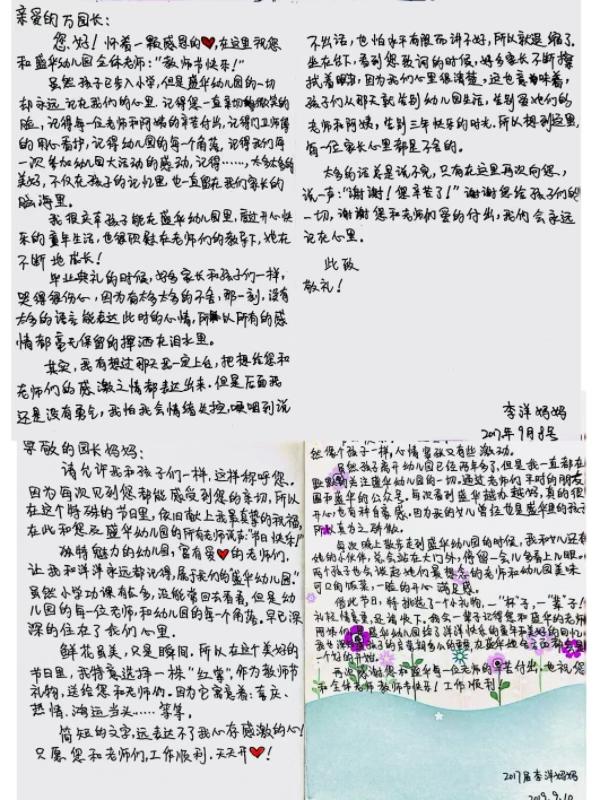 亲爱的万园长：
您好！怀着一颗感恩的❤，在这里祝您
和盛华幼儿园全体老师：“教师节快乐！”
虽然孩子已步入小学，但是盛华幼儿园的一切
却永远记在我们的心里。记得您一直亲切微笑的
脸，记得每一位老师和阿姨的辛苦付出，记得门卫师傅
的用心看护，记得幼儿园的每个角落，记得我们每
一次参加幼儿园大活动的感动，记得……，太多太多的
美好，不仅在孩子的记忆里，也一直留在我们家长的
脑海里。
我很庆幸孩子能在盛华幼儿园里，度过开心快
乐的童年生活，也很欣慰在老师们的教导下，她在
不断地成长！
毕业典礼的时候，好多家长和孩子们一样，
哭得很伤心，因为有太多太多的不舍，那一刻，没有
太多的语言能表达此时的心情，所以所有的感
情都毫无保留的挥洒在泪水里。
其实，我有想过那天我一定上台，把想给您和
老师们的感激之情都表达出来。但是后面我
还是没有勇气，我怕我会情绪失控，哽咽到说
不出话，也怕水平有限而讲不好，所以就退缩了。
坐在台下，看到您致词的时候，好多家长不断擦
拭着眼泪，因为我们心里很清楚，这也意味着，
孩子们从那天就告别幼儿园生活，告别爱她们的
老师和阿姨，告别三年快乐的时光。所以想到这里，
每一位家长心里都是不舍的。
太多的话总是说不完，只有在这里再次向您，
说一声：“谢谢！您辛苦了！”谢谢您给孩子们的
一切，谢谢您和老师们爱的付出，我们会永远
记在心里。
此致
敬礼！
李洋妈妈
2017年9月8号
尊敬的园长妈妈：
请允许我和孩子们一样，这样称呼您。
因为每次见到您都能感受到您的亲切，所以
在这个特殊的节日里，依旧献上我最真挚的祝福，
在此和您及盛华幼儿园的所有老师说声：“节日快乐！”
独特魅力的幼儿园，富有爱❤的老师们，
让我和洋洋永远都记得，属于我们的“盛华幼儿园。”
虽然小学功课有些多，没能常回去看看，但是幼
儿园的每一位老师，和幼儿园的每一个角落，早已深
深的住在了我们心里。
鲜花虽美，只是瞬间，所以在这个美好的
节日里，我特意选择一株“红掌”，作为教师节
礼物，送给您和老师们。因为它寓意着：喜庆、
热情、鸿运当头……等等。
简短的文字，远表达不了我心存感激的心！
只愿您和老师们，工作顺利，天天开❤！
虽然孩子离开幼儿园已经两年多了，但是我一直都在
默默的关注盛华幼儿园的一切。通过老师们平时的朋友
圈和盛华的公众号，每次看到盛华越办越好，真的很
开心，也有种自豪感。因为我的女儿曾经也是盛华里的孩子
每次晚上散步走到盛华幼儿园的时候，我和女儿还有
再次感谢您和盛华每一位老师的辛苦付出，也祝您
和全体老师教师节快乐！工作顺利！
2017届李洋妈妈
2019.9.10